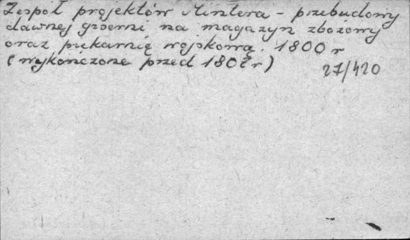 Zespół projektów Mintera - przebudowy
dawnej giserni na magazyn zbożowy
oraz piekarnię wojskową. 1800 r
(wykończone przed 1802 r)
27/420